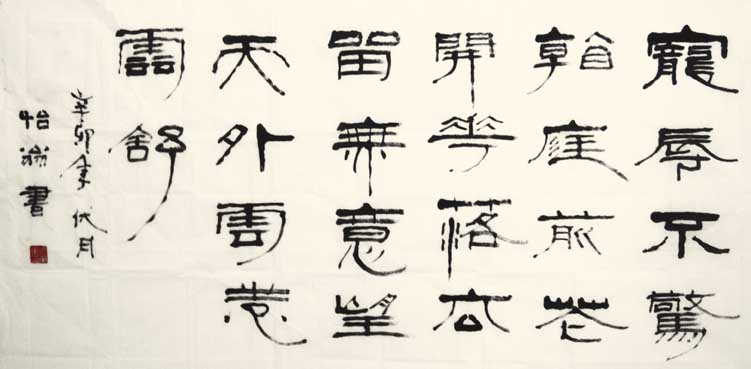 寵辱不驚
看庭前花
開花落去
留無意望
天外雲卷
雲舒
辛卯年伏月
怡翁書